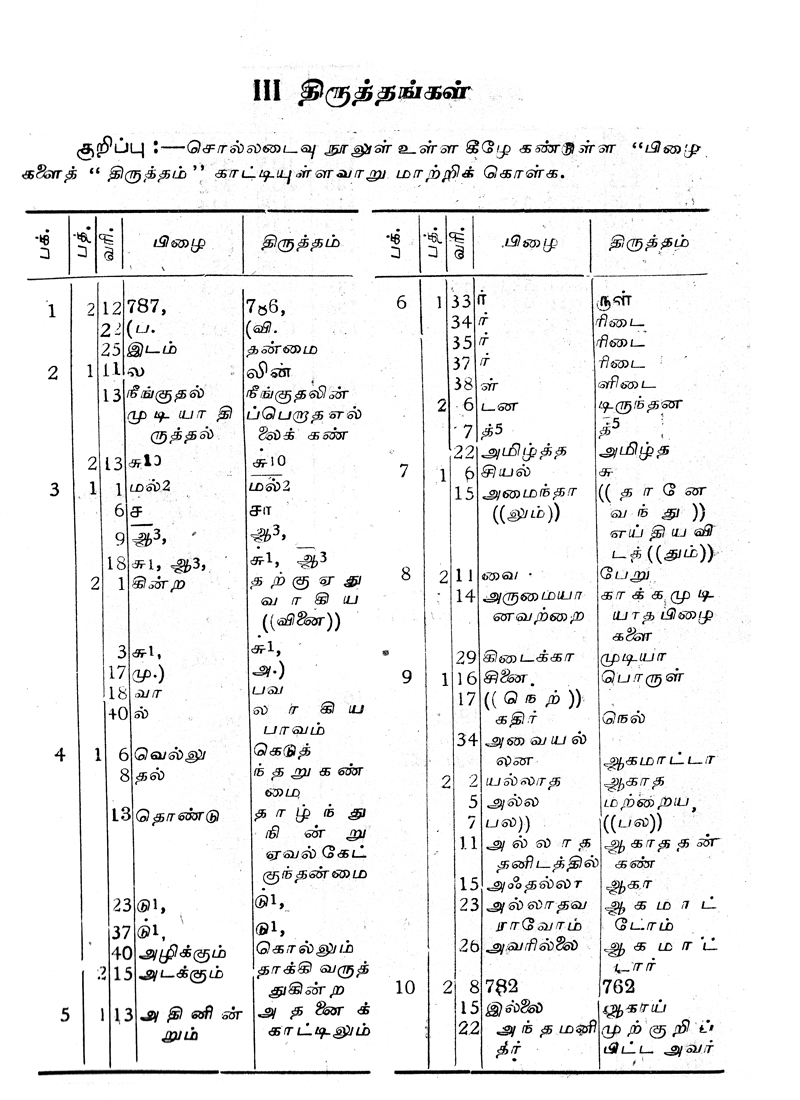 III திருத்தங்கள்
குறிப்பு :—சொல்லடைவு நூலுள் உள்ள கீழே கண்டுள்ள “பிழை
களைத் “ திருத்தம் ’’ காட்டியுள்ளவாறு மாற்றிக் கொள்க.
பக். பத். வரி. பிழை திருத்தம்
1 2 12 787, 786,
22 (ப. (வி.
25 இடம் தன்மை
2 1 11 ல லின்
13 நீங்குதல் நீங்குதலின்
முடியாதி ப்பெறாதஎல்
ருத்தல் லைக் கண்
2 13 சு10 சு10
3 1 1 மல்2 மல்2
6 ச சா
9 ஆ3, ஆ3,
18 சு1, ஆ3, சு1, ஆ3
2 1 கின்ற தற்குஏது
வாகிய
((வினை))
3 சு1, சு1,
17 மு.) அ.)
18 வா பவ
40 ல் லாகிய
பாவம்
4 1 6 வெல்லு கெடுத்
8 தல் ந்தறுகண்
மை
13 தொண்டு தாழ்ந்து
நின்று
ஏவல்கேட்
குந்தன்மை
23 டு1, டு1,
37 டு1, டு1,
40 அழிக்கும் கொல்லும்
2 15 அடக்கும் தாக்கி வருத்
துகின்ற
5 1 13 அதினின் அதனைக்
றும் காட்டிலும்
பக். பத். வரி. பிழை திருத்தம்
6 1 33 ர் ருள்
34 ர் ரிடை
35 ர் ரிடை
37 ர் ரிடை
38 ள் ளிடை
2 6 டன டிருந்தன
7 த்5 த்5
22 அமிழ்த்த அமிழ்த
7 1 6 சியல் சு
15 அமைந்தா ((தானே
((லும்)) வந்து))
எய்தியவி
டத்((தும்))
8 2 11 வை பேறு
14 அருமையா காக்கமுடி
னவற்றை யாதபிழை
களை
29 கிடைக்கா முடியா
9 1 16 சினை. பொருள்
17 ((நெற்))
கதிர் நெல்
34 அவையல்
லன ஆகமாட்டா
2 2 யல்லாத ஆகாத
5 அல்ல மற்றைய,
7 பல)) ((பல))
11 அல்லாத ஆகாததன்
தனிடத்தில் கண்
15 அஃதல்லா ஆகா
23 அல்லாதவ ஆகமாட்
ராவோம் டோம்
26 அவரில்லை ஆகமாட்
டார்
10 2 8 782 762
15 இல்லை ஆகாய்
22 அந்தமனி முற்குறிப்
தீர் பிட்ட அவர்